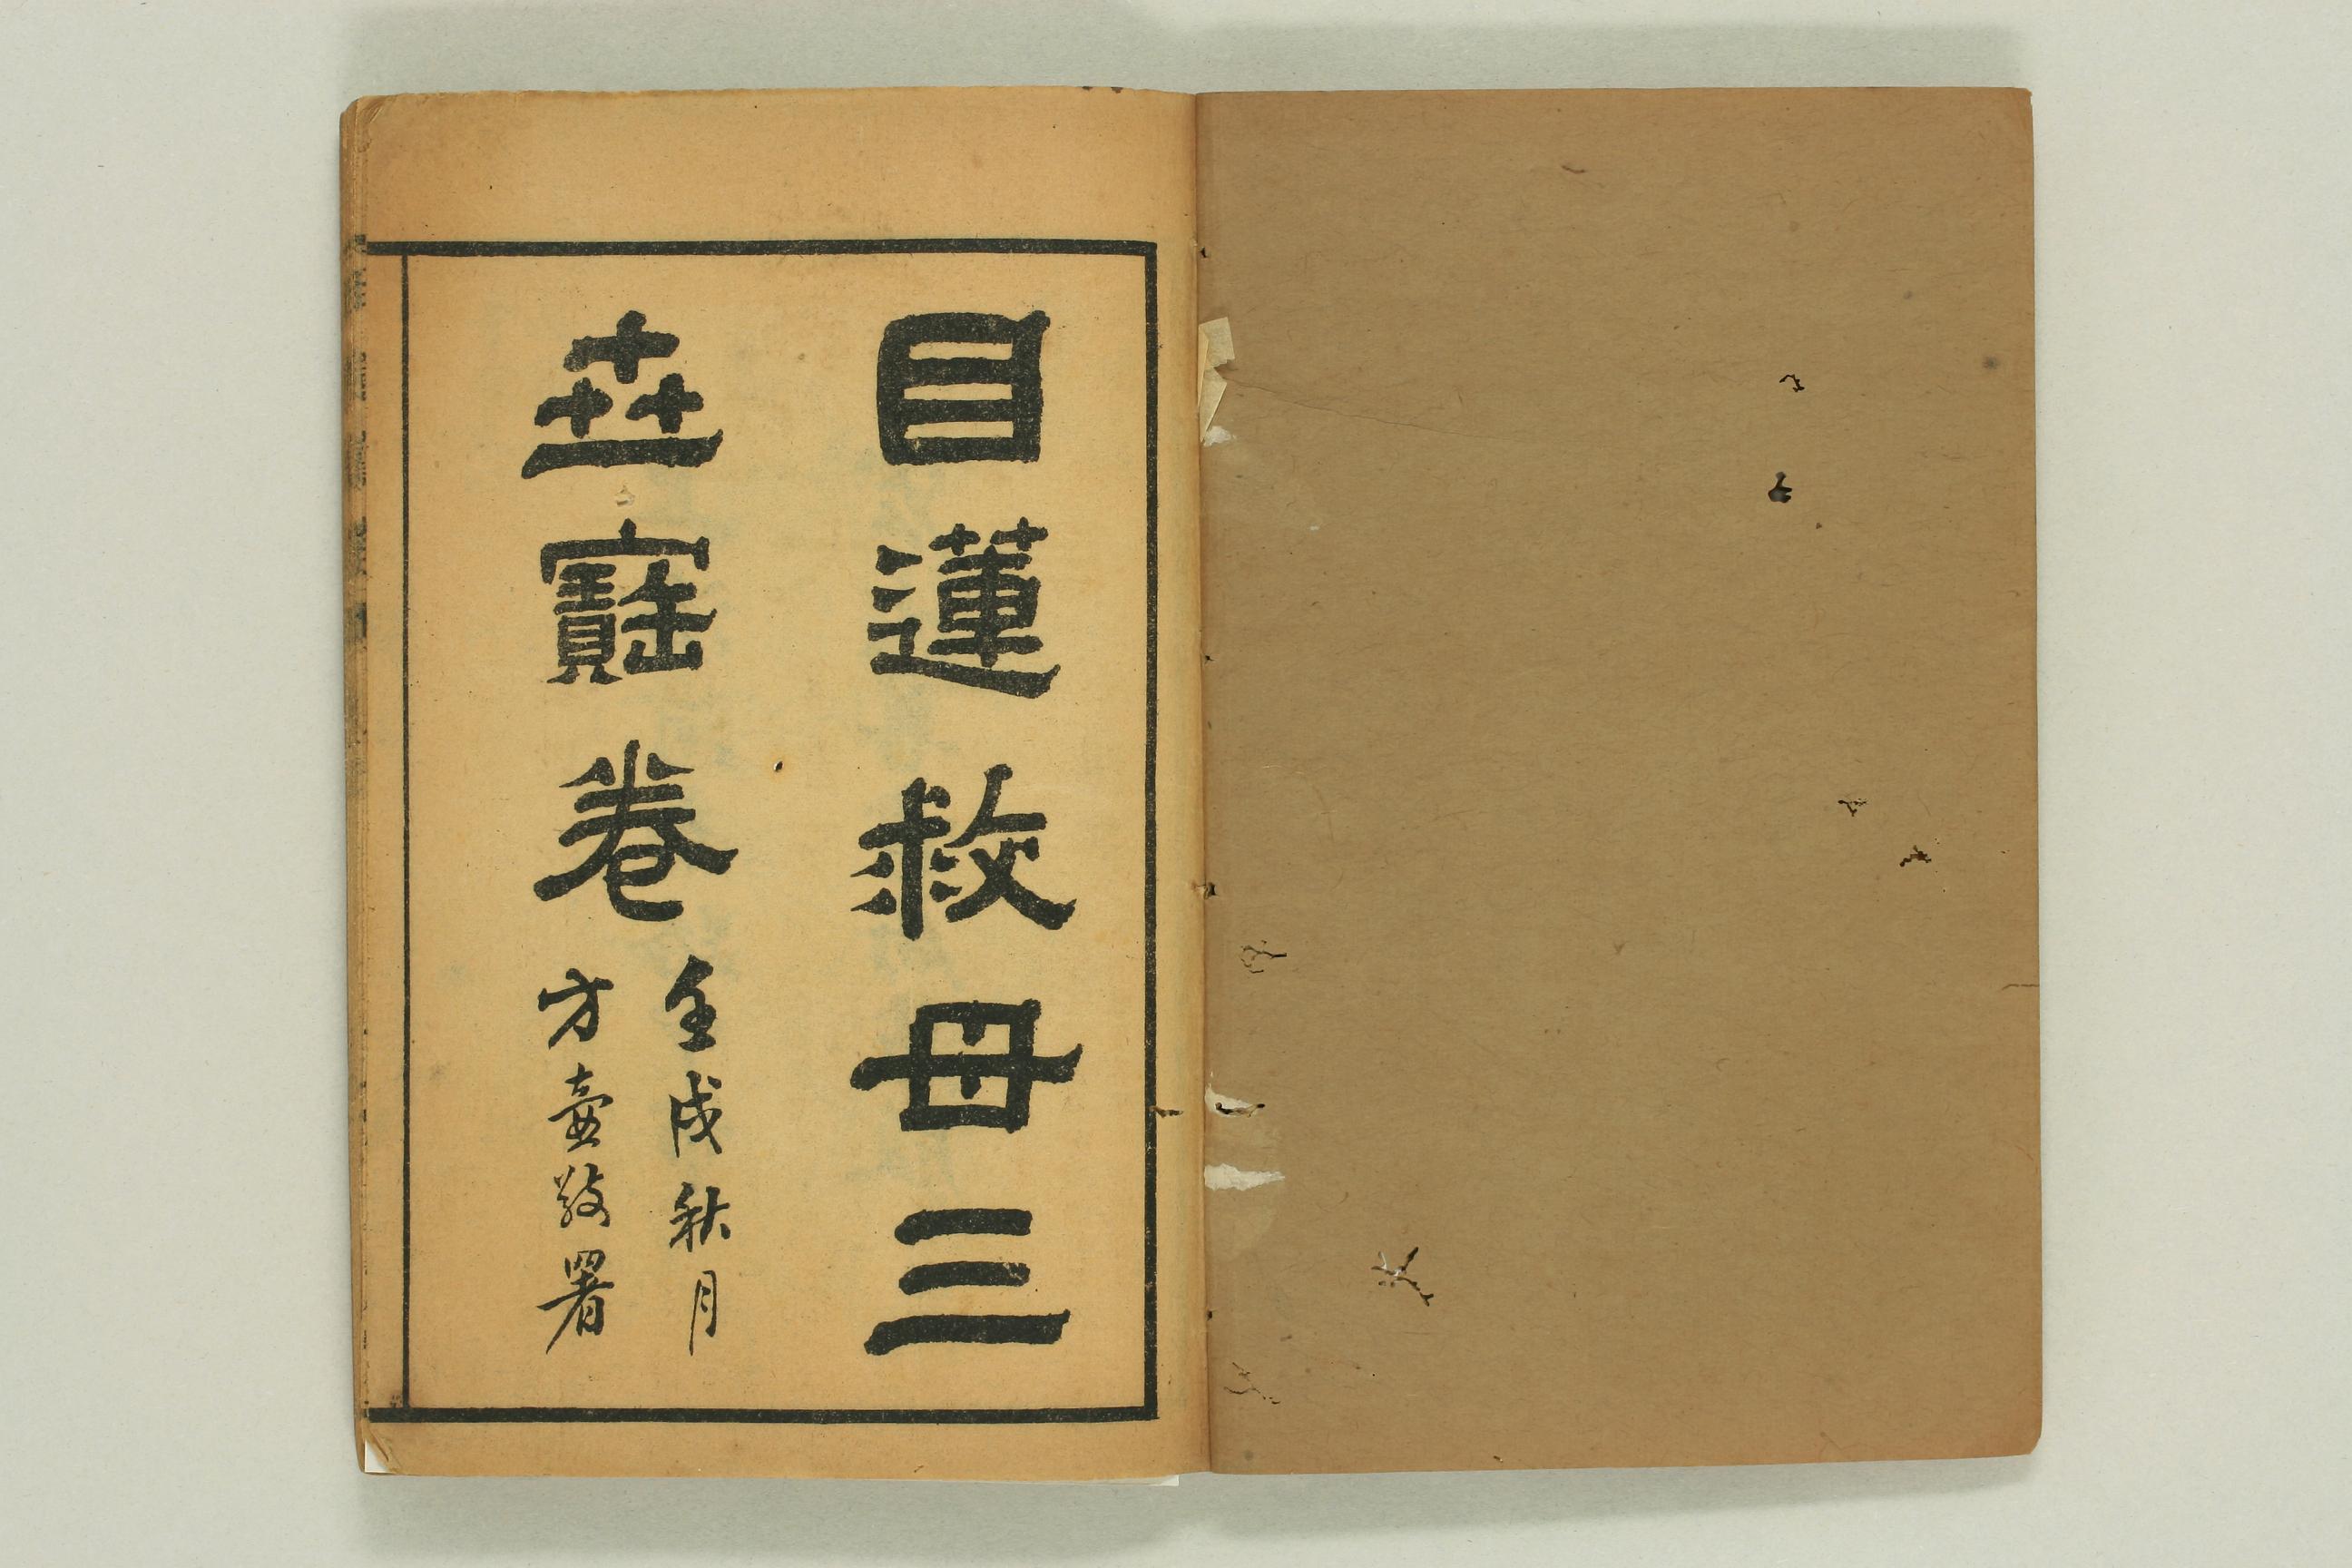 目蓮救母三
丗寶卷
壬戌秋月
方壺敬署